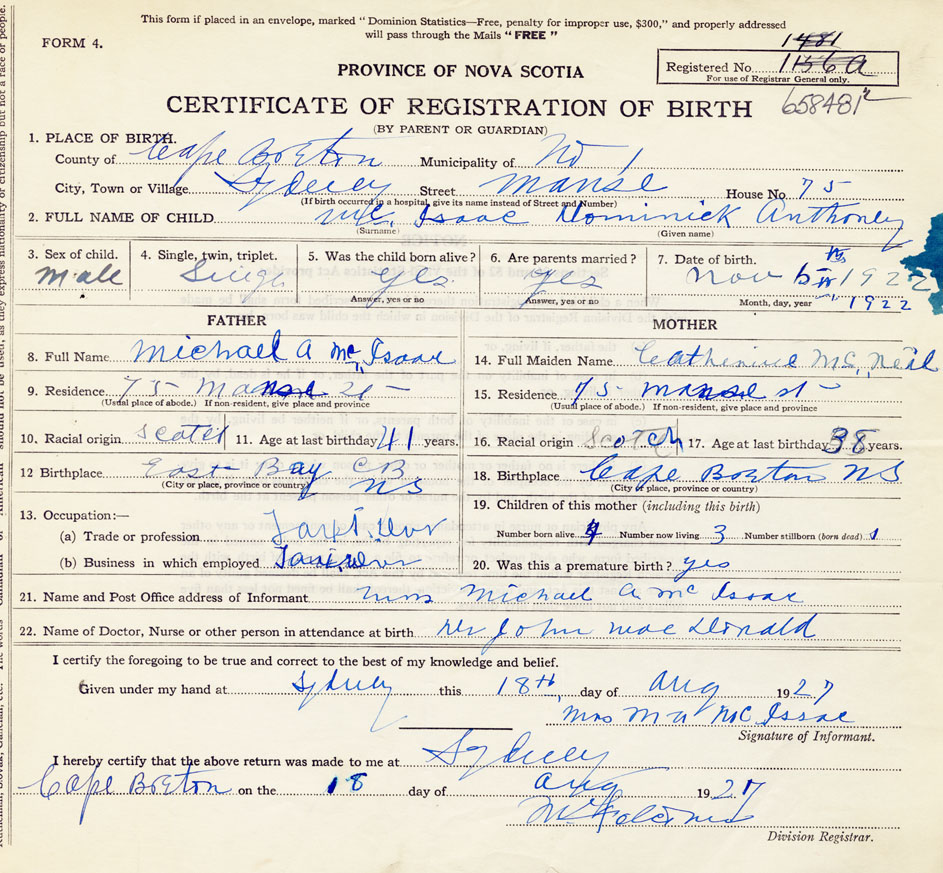 This form if placed in an envelope, marked "Dominion Statistics—Free, penalty for improper use, $300," and properly addressed
will pass through the Mails "FREE"
FORM 4.
1481
Registered No. 1156A
For use of Registrar General only.
PROVINCE OF NOVA SCOTIA
CERTIFICATE OF REGISTRATION OF BIRTH 658481
(BY PARENT OR GUARDIAN)
1. PLACE OF BIRTH.
County of Cape Breton Municipality of No 1
City, Town or Village Sydney Street Manse House No. 75
(If birth occurred in a hospital, give its name instead of Street and Number)
2. FULL NAME OF CHILD Mc Isaac Dominick Anthoney
(Surname) (Given name)
3. Sex of child. 4. Single, twin, triplet. 5. Was the child born alive? 6. Are parents married? 7. Date of birth.
Male Singl yes. yes Nov 5th 1922
Answer, yes or no Answer, yes or no Month, day, year 1922
FATHER MOTHER
8. Full Name Michael A Mc Isaac 14. Full Maiden Name Catherine Mc Neil
9. Residence 75 Manse St 15. Residence 75 manse st
(Usual place of abode.) If non-resident, give place and province (Usual place of abode.) If non-resident, give place and province
10. Racial origin Scotch 11. Age at last birthday 41 years. 16. Racial origin Scotch 17. Age at last birthday 38 years.
12 Birthplace East Bay CB NS 18. Birthplace Cape Breton NS
(City or place, province or country) (City or place, province or country)
13. Occupation:— 19. Children of this mother (including this birth)
(a) Trade or profession
Number born alive 4 Number now living 3 Number stillborn (born dead) 1
(b) Business in which employed 20. Was this a premature birth? yes
21. Name and Post Office address of Informant Mrs Michael A Mc Isaac
22. Name of Doctor, Nurse or other person in attendance at birth Dr John Mac Donald
I certify the foregoing to be true and correct to the best of my knowledge and belief.
Given under my hand at Sydney this 18th day of Aug 1927
Mrs M A Mc Isaac
Signature of Informant.
I hereby certify that the above return was made to me at Sydney
Cape Breton on the 18 day of Aug 1927
Division Registrar.